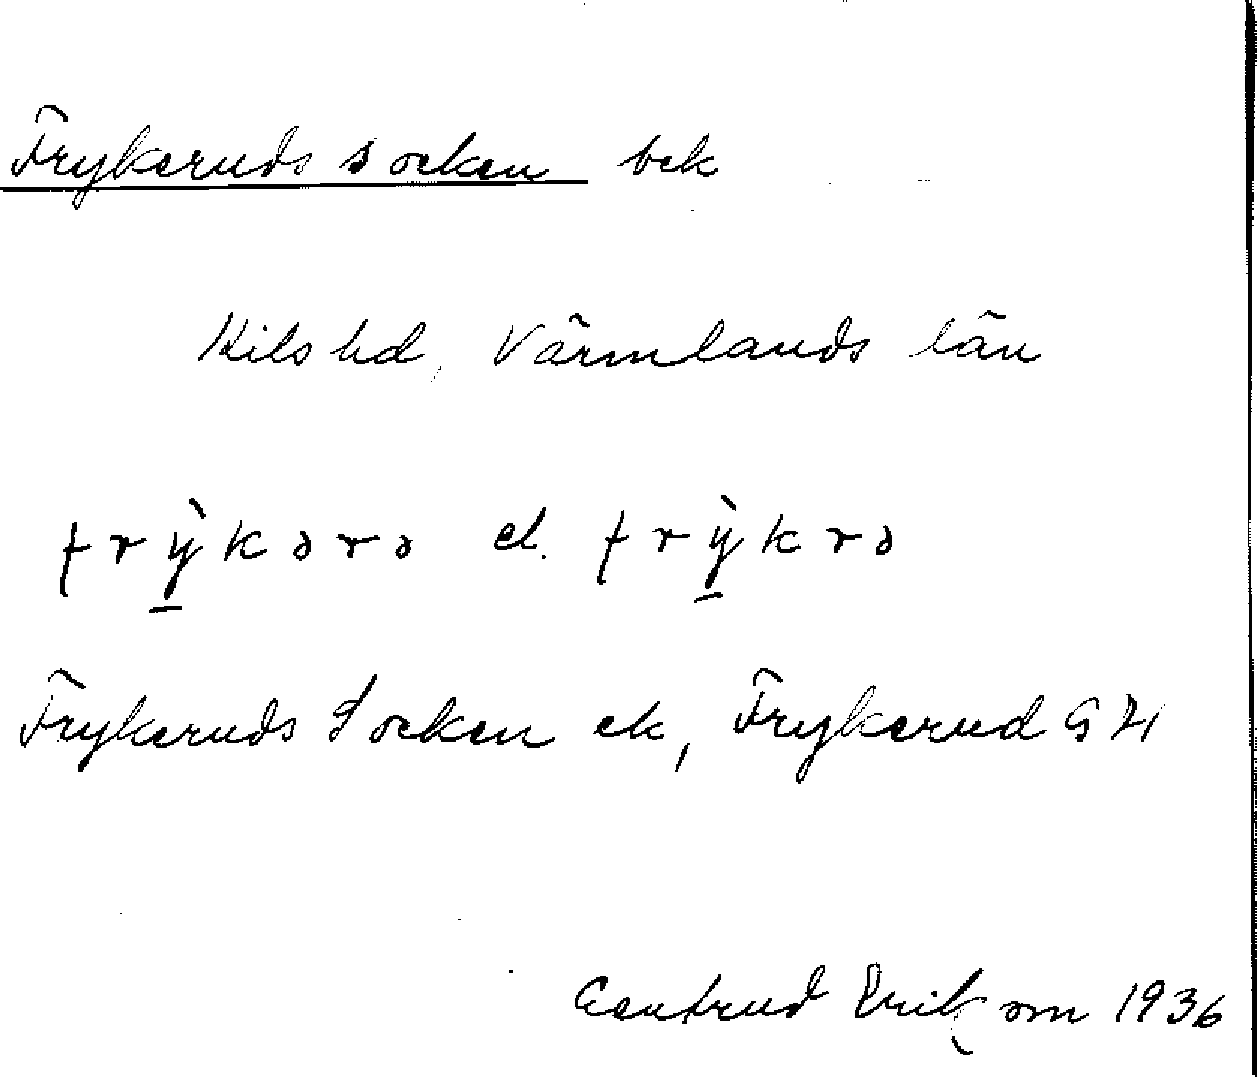 Frykeruds socken bek
Kils hd, Värmlands län
frỳ̱kərə el. frỳ̱krə
Frykeruds Socken ek, Frykerud GK
Gertrud Erikson 1936